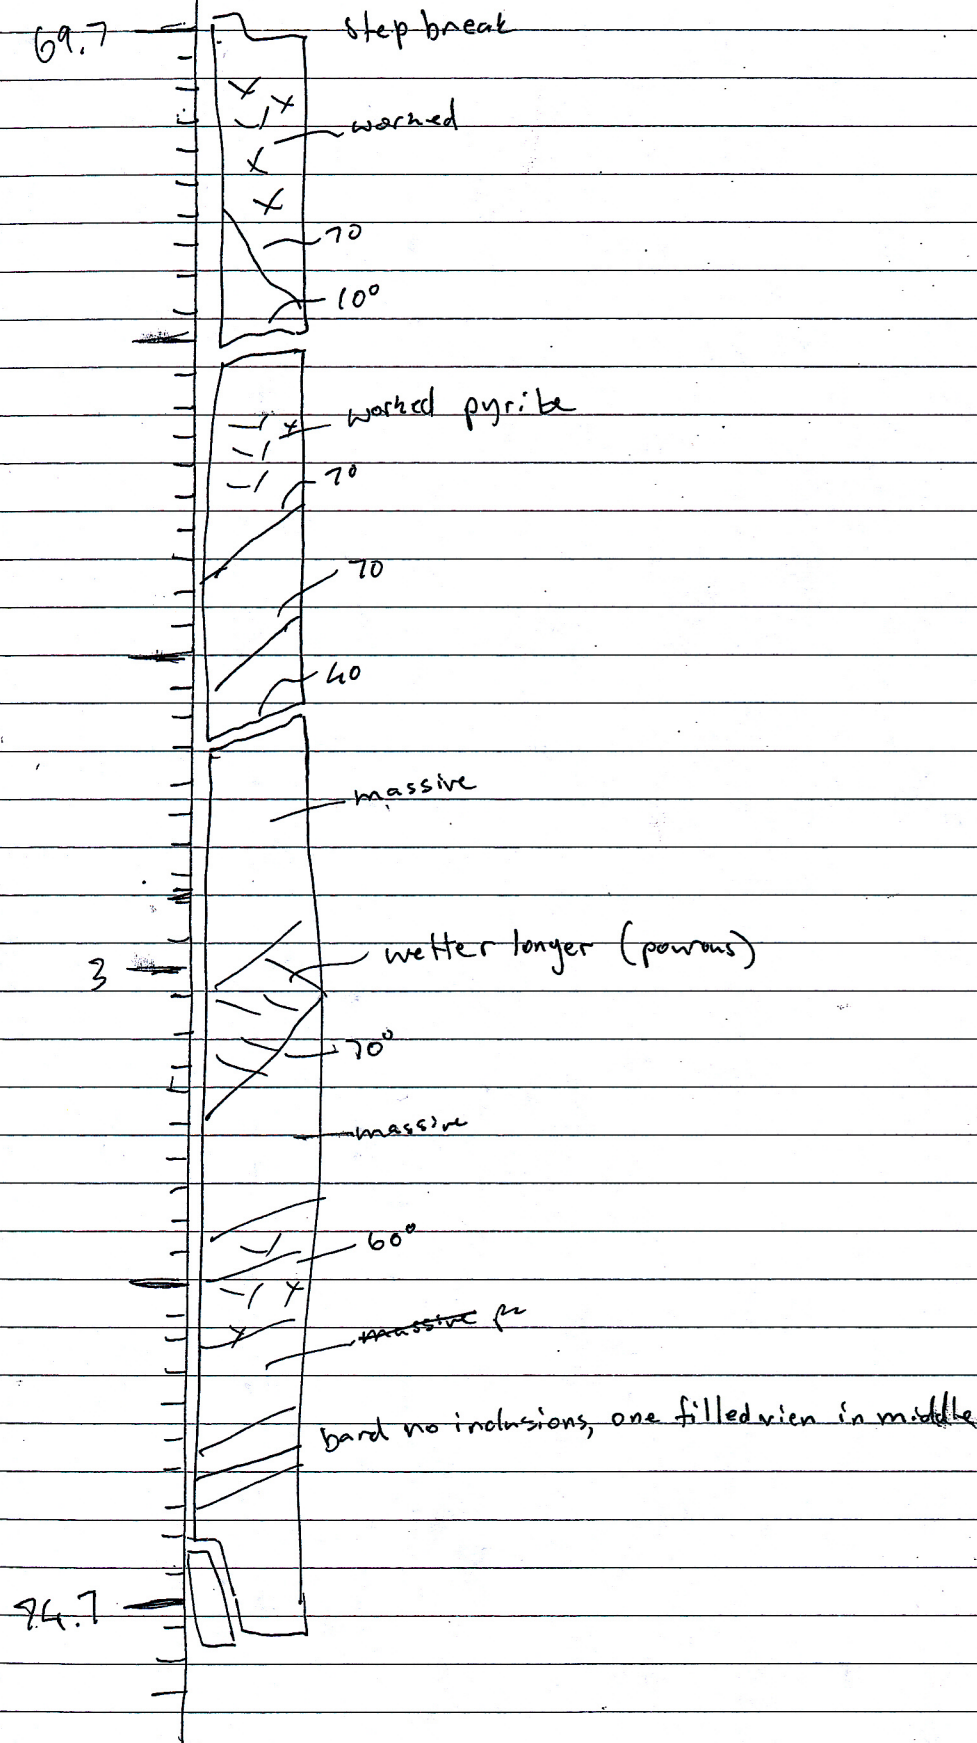 69.7 step break
worked
70
10°
worked pyrite
70
70
40
massive
3 wetter longer (powrous)
70°
massive
60°
massive
band no inclusions, one filled vien in middle